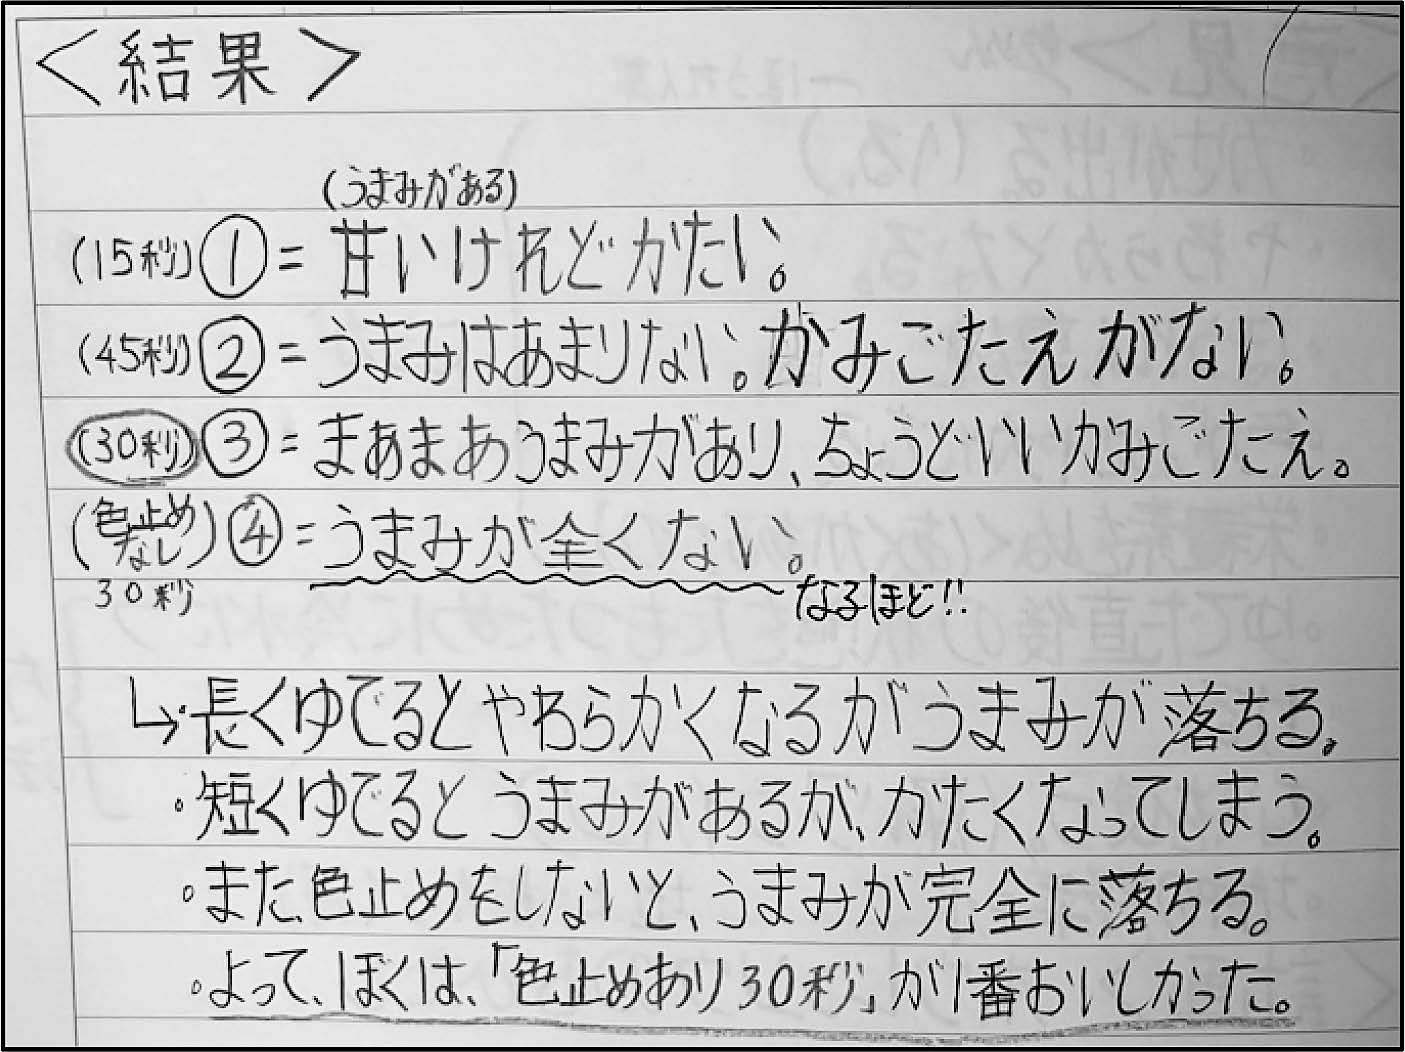 ＜結果＞
(うまみがある)
(15秒)①=甘いけれどかたい。
(45秒)②=うまみはあまりない。かみごたえがない。
(30秒)③=まあまあうまみがあり、ちょうどいいかみごたえ。
(色止めなし)④=うまみが全くない。
30秒 なるほど!!
↳・長くゆでるとやわらかくなるがうまみが落ちる。
・短くゆでるとうまみがあるが、かたくなってしまう。
・また、色止めをしないと、うまみが完全に落ちる。
・よって、ぼくは、「色止めあり30秒」が1番おいしかった。